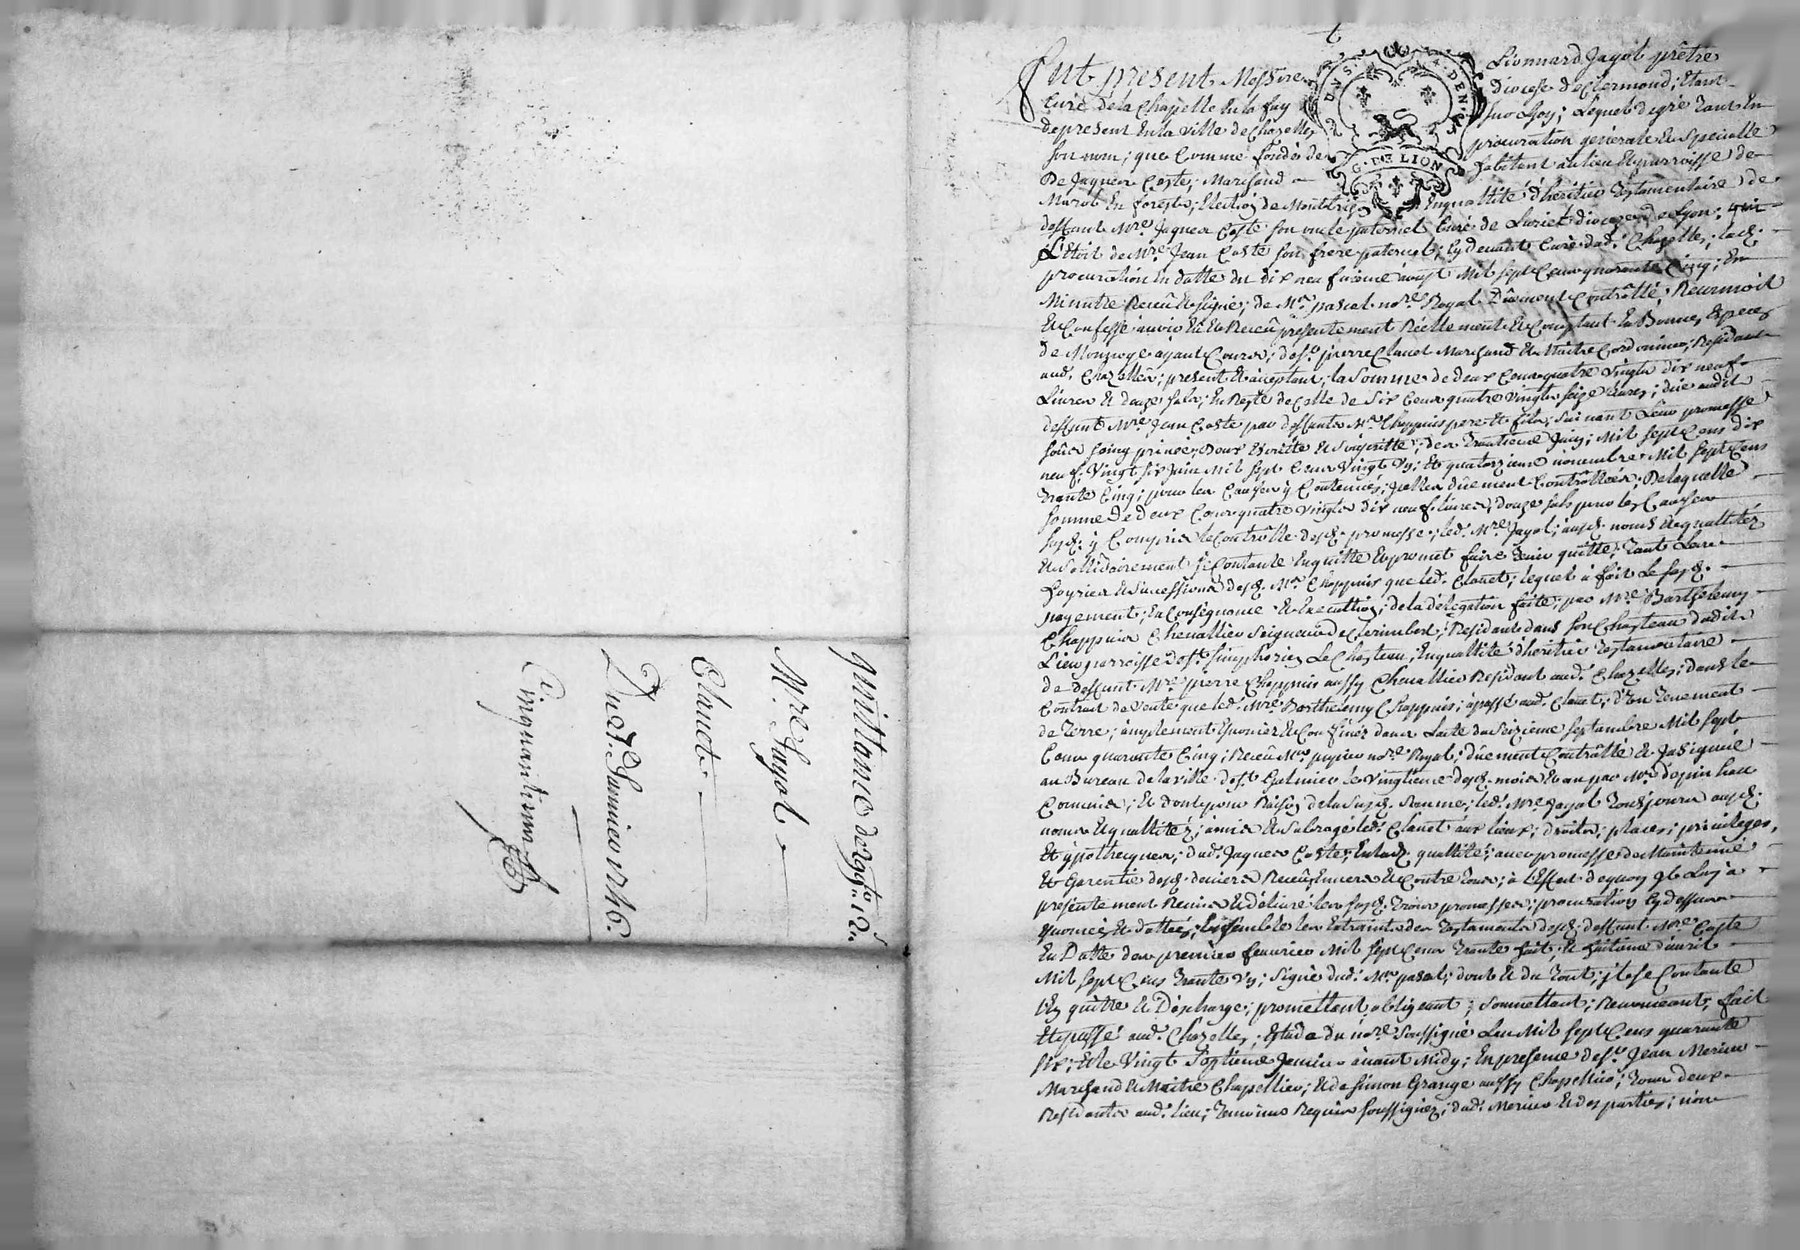 quittance de 299#. 12s.
Mre Jayol
Clauet.
Du 27. Januier 1746.
Cinquantieme
UNS. DEN.
G. DE LION
Fut present Messire Lionnard Jayol prêtre
Curé de la Chapelle En la fay diocese de Clermond; Etant
de present En la Ville de Chazelles sur Lyon; Lequel degré Tant En
son nom; que Comme fondés de procuration generalle Et Specialle
De Jaques Coste, Marchand habitent au lieu Et parroisse de
Marol En forests; Election de Montbrison Enquallité d'heritier Testamentaire de
deffunt Mre Jaques Coste son oncle paternel Curé de Luriet diocese de Lyon;
L'Etoit de Mre Jean Coste son frere paternel; Cydeuant Curé dud. Chazelles; lad.
procuration En datte du dix neufuieme aoust Mil sept Cens quarante Cinq; En
Minutte Receu Et signé; de Me pascal nore Royal Düement Controllé; Reconnoit
Et Confesse auoir Eû Et Receû presentement Réellement Et Comptant En Bonnes Especes
de Monnoye ayant Cours; de sr. pierre Clauet Marchand Et Maitre Cordonnier; Residant
aud. Chazelles; present Et acceptant; la Somme de deux Cens quatre Vingts dix neuf
Liures Et douze sols; En Reste de Celle de Six Cens quatre Vingts seize liures; düe audit
deffunt Mre Jean Coste par deffunts Mrs Chappuis pere Et fils; Suiuant Leur promesse
sous seing priué; pour Ecritte Et Souscritte; des Trantieme Juin; Mil sept Cens dix
neuf; Vingt six Juin Mil sept Cens Vingt Un; Et quatorzieme nouembre Mil sept Cens
Trante Cinq; pour les Causes y Contenües; Icelles düement Controllées; De laquelle
somme de deux Cens quatre Vingts dix neuf liures; douze sols pour les Causes
susd. y Compris le Controlle desd. promesses; led. Mre Jayol; ausd. noms Et quallités
Et Sollidairement se Contante En quitte Et promet faire Tenir quitte; Tant Les
hoyries Et Successions desd. Mrs Chappuis que led. Clauet; lequel à fait Le susd.
payement; En Consequence Et Execution; de la delegation faite; par Mre Barthelemy
Chappuis Cheuallier Seigneur de Clerimbert; Residant dans son Chasteau dudit
Lieu parroisse de st. simphorien Le Chasteau; Enquallité d'heritier Testamentaire
de deffunt Mre pierre Chappuis aussy Cheuallier Residant aud. Chazelles; dans le
Contrat de Vente que led. Mre Barthelemy Chappuis; a passé aud. Clauet; d'Un Tenement
de Terre; amplement Enoncé Et Confiné dans L'acte du Seizieme septembre Mil sept
Cens quarante Cinq; Receu Me pupier nore Royal; düement Controllé Et Insignué
au Bureau de la ville de st. Galmier le Vingtieme desd. mois Et an par Me
Commis; Et dont pour Raison de la Susd. Somme; led. Mre Jayol Tousjours ausd.
noms Et quallités; à mis Et Subrogé led. Clauet aux lieux; droits; places; priuileges,
Et ypotheques; dud. Jaques Coste; Enlad. quallité; auec promesse de Maintenüe
Et Garentie desd. deniers Receus Enuers Et Contre Tous; à L'Effet de quoy Il Luy a
presentement Remis Et deliuré les susd. Trois promesses; procuration Cy dessus
Enoncés Et dattés; Ensemble les Extraits des Testaments dud. deffunt Mre Coste
En Datte des premier feurier Mil sept Cens Trante huit; Et huitieme d'auril
Mil sept Cens Trante Un; Signé dud. Me pascal; dont Et du Tout; il se Contante
En quitte Et Décharge; promettant, obligeant; Soumettant; Renonceant; Fait
Et passé aud. Chazelles; Estude du nore Soussigné L'an Mil sept Cens quarante
six; Et le Vingt Septieme Januier auant Midy; En presence de sr. Jean Merieu
Marchand Et Maitre Chapellier; Et de Simon Grange aussy Chapellier; Tous deux
Residants aud. lieu; Temoins Requis soussignez; dud. Merieu Et des parties; non